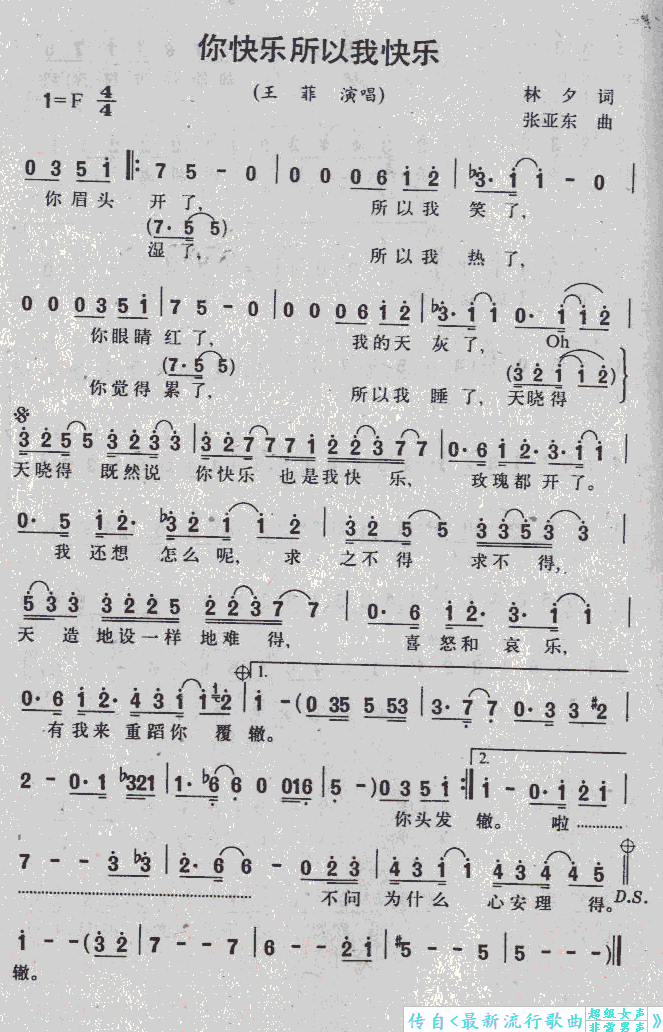 你快乐所以我快乐
(王 菲 演唱)
1=F 4/4
林 夕 词
张亚东 曲
0 3 5 i ‖: 7 5 - 0 | 0 0 0 6 i 2 | ♭3· i i - 0 |
你眉头 开了, 所以我 笑了,
(7· 5 5)
湿了, 所以我 热了,
0 0 0 3 5 i | 7 5 - 0 | 0 0 0 6 i 2 | ♭3· i i 0· i i 2 |
你眼睛 红了, 我的天 灰了, Oh
(7· 5 5) (3 2 i i 2)
你觉得 累了, 所以我 睡了, 天晓得
𝄋
3 2 5 5 3 2 3 3 | 3 2 7 7 7 i 2 2 3 7 7 | 0· 6 i 2· 3· i i |
天晓得 既然说 你快乐 也是我快 乐, 玫瑰都 开了。
0· 5 i 2· ♭3 2 i i 2 | 3 2 5 5 3 3 5 3 3 |
我 还想 怎么呢, 求 之不得 求不得,
5 3 3 3 2 2 5 2 2 3 7 7 | 0· 6 i 2· 3· i i |
天 造 地设一样 地难 得, 喜 怒和 哀乐,
𝄌 1.
0· 6 i 2· 4 3 i i i 2 | i - (0 35 5 53 | 3· 7 7 0· 3 3 #2 |
有我来 重蹈你 覆 辙。
2.
2 - 0· 1 ♭321 | 1· ♭6 6 0 016 | 5 - ) 0 3 5 i :‖ i - 0· i 2 i |
你头发 辙。 啦…………
7 - - 3 ♭3 | 2· 6 6 - 0 2 3 | 4 3 i i 4 3 4 4 5 ‖ 𝄌
不问 为什么 心安理 得。 D.S.
i - - (3 2 | 7 - - 7 | 6 - - 2 i | #5 - - 5 | 5 - - - )‖
辙。
传自<最新流行歌曲 超级女声 非常男声 》